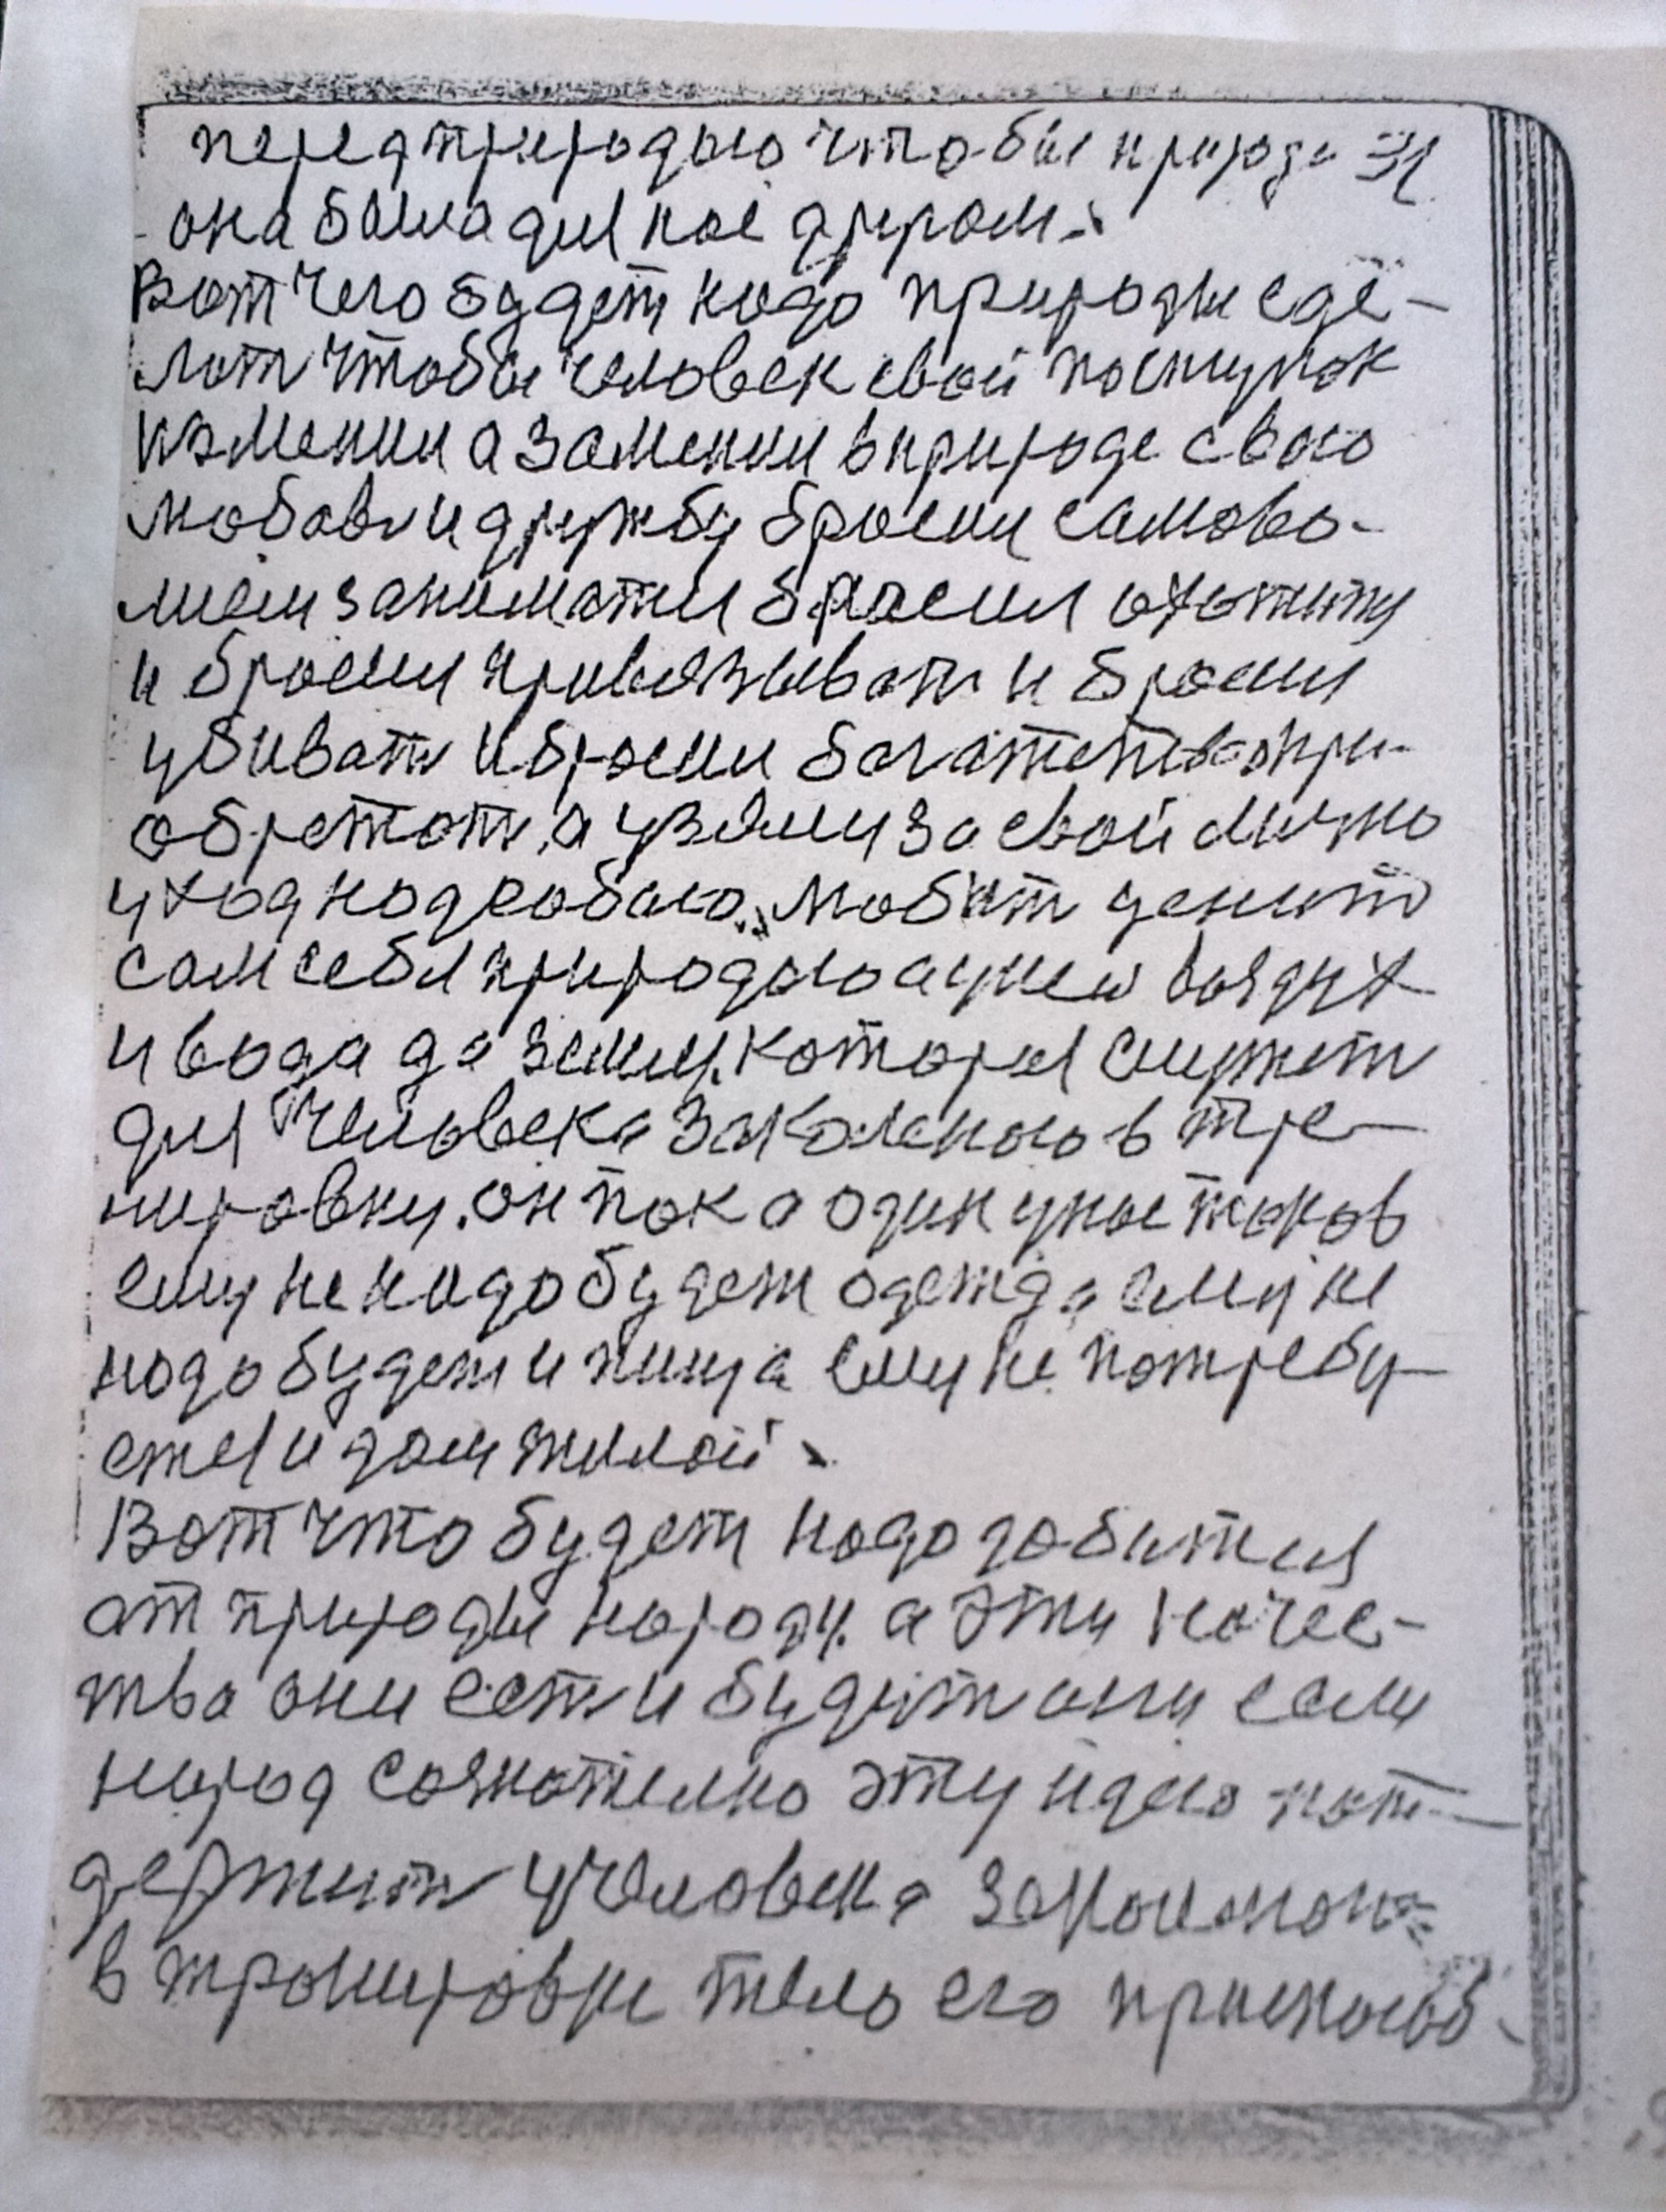 перед природыю чтобы природа 31
она была для нас другом.
Вот чего будет надо природы сде-
лат чтобы человек свой поступок
изменил а заменил в природе свою
любовь и дружбу бросил самово-
лием заниматся бросил охотитъ
и бросил привязыват и бросил
убиват и бросил богатетство при-
обретат, а узялся за свой лично
уход над собою. Любит ценит
сам себя природою а ужем воздух
и вода да земля. которая служит
для человека закаленого в тре-
нировки. он пока один у нас таков
ему не надо будет одежда ему не
надо будет и пища ему не потребу-
ется и дом жилой.
Вот что будет надо добится
от природы народу. а эти качес-
тва они есть и будут они если
народ сознателно эту идею пот-
держит у человека закаленом
в тронировки тело его приспосоb-